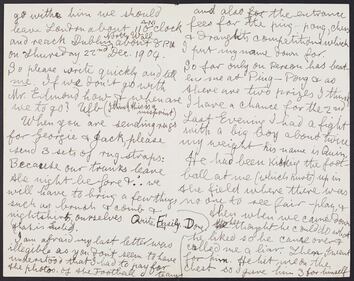 go with him we should
leave London about o'clock
and reach Dublin about 8 P.M.
on Thursday 22nd Dec. 1904.
So please write quickly and tell
me if we don't go with
Mr. Edmony hour & when are
me to go?
When you are sending rugs
for Georgie & Jack please
send 3 sets of rug-straps:
Because our trunks leave
the night before & we
will have to bring a few things
such as brush & comb &
nightshirt, ourselves Quite Easily Done
that is suited.
I am afraid my last letter was
illegible as you don't seem to have
understood that I had to pay for
the photos of the Football teams
and also for the entrance
fees for the ping-pong, chess
& draughts, competitions which
I put my name down for
So far only one person has beat
en me at Ping-Pong & as
there are two prizes I think
I have a chance for the 2nd
Last Evening I had a fight
with a big boy about twice
my weight his name is Quin
He had been kicking the foot
ball at me (which hurts) up in
the field where there was
no one to see fair play, &
then when we came down
thought he could do what
he liked so he came over &
called me a liar. I then went
for him. He hit me in the
chest so I gave him 3 for himself